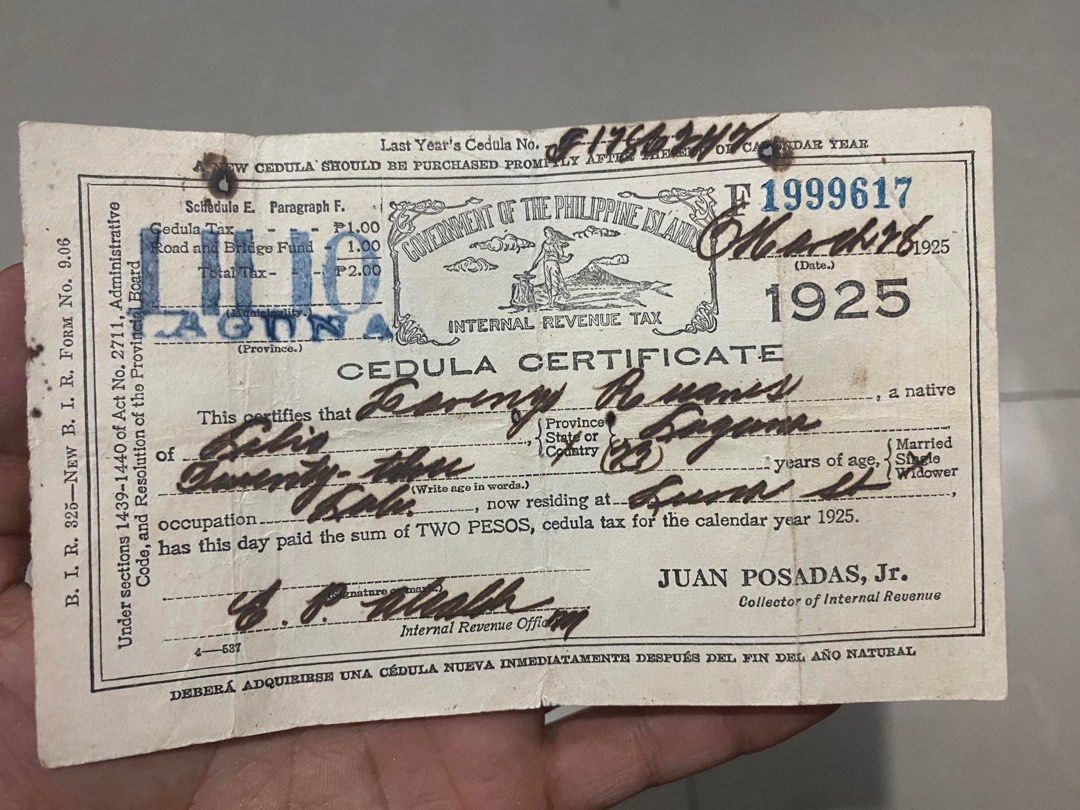 Last Year's Cedula No. F1786247
A NEW CEDULA SHOULD BE PURCHASED PROMPTLY AFTER THE END OF CALENDAR YEAR
Schedule E. Paragraph F.
Cedula Tax - - - ₱1.00
Road and Bridge Fund - 1.00
Total Tax - - - ₱2.00
LILIO
(Municipality.)
LAGUNA
(Province.)
GOVERNMENT OF THE PHILIPPINE ISLANDS
INTERNAL REVENUE TAX
F 1999617
March 28 1925
(Date.)
1925
CEDULA CERTIFICATE
This certifies that Ruanes, a native
of Lilio, {Province State or Country Laguna
Twenty-three (23) years of age, {Married Single Widower
(Write age in words.)
occupation Lab., now residing at Luna st,
has this day paid the sum of TWO PESOS, cedula tax for the calendar year 1925.
(Signature or mark.)
E. P.
Internal Revenue Officer
JUAN POSADAS, Jr.
Collector of Internal Revenue
4—537
DEBERÁ ADQUIRIRSE UNA CÉDULA NUEVA INMEDIATAMENTE DESPUÉS DEL FIN DEL AÑO NATURAL
B. I. R. 325—NEW B. I. R. FORM No. 9.06
Under sections 1439-1440 of Act No. 2711, Administrative
Code, and Resolution of the Provincial Board